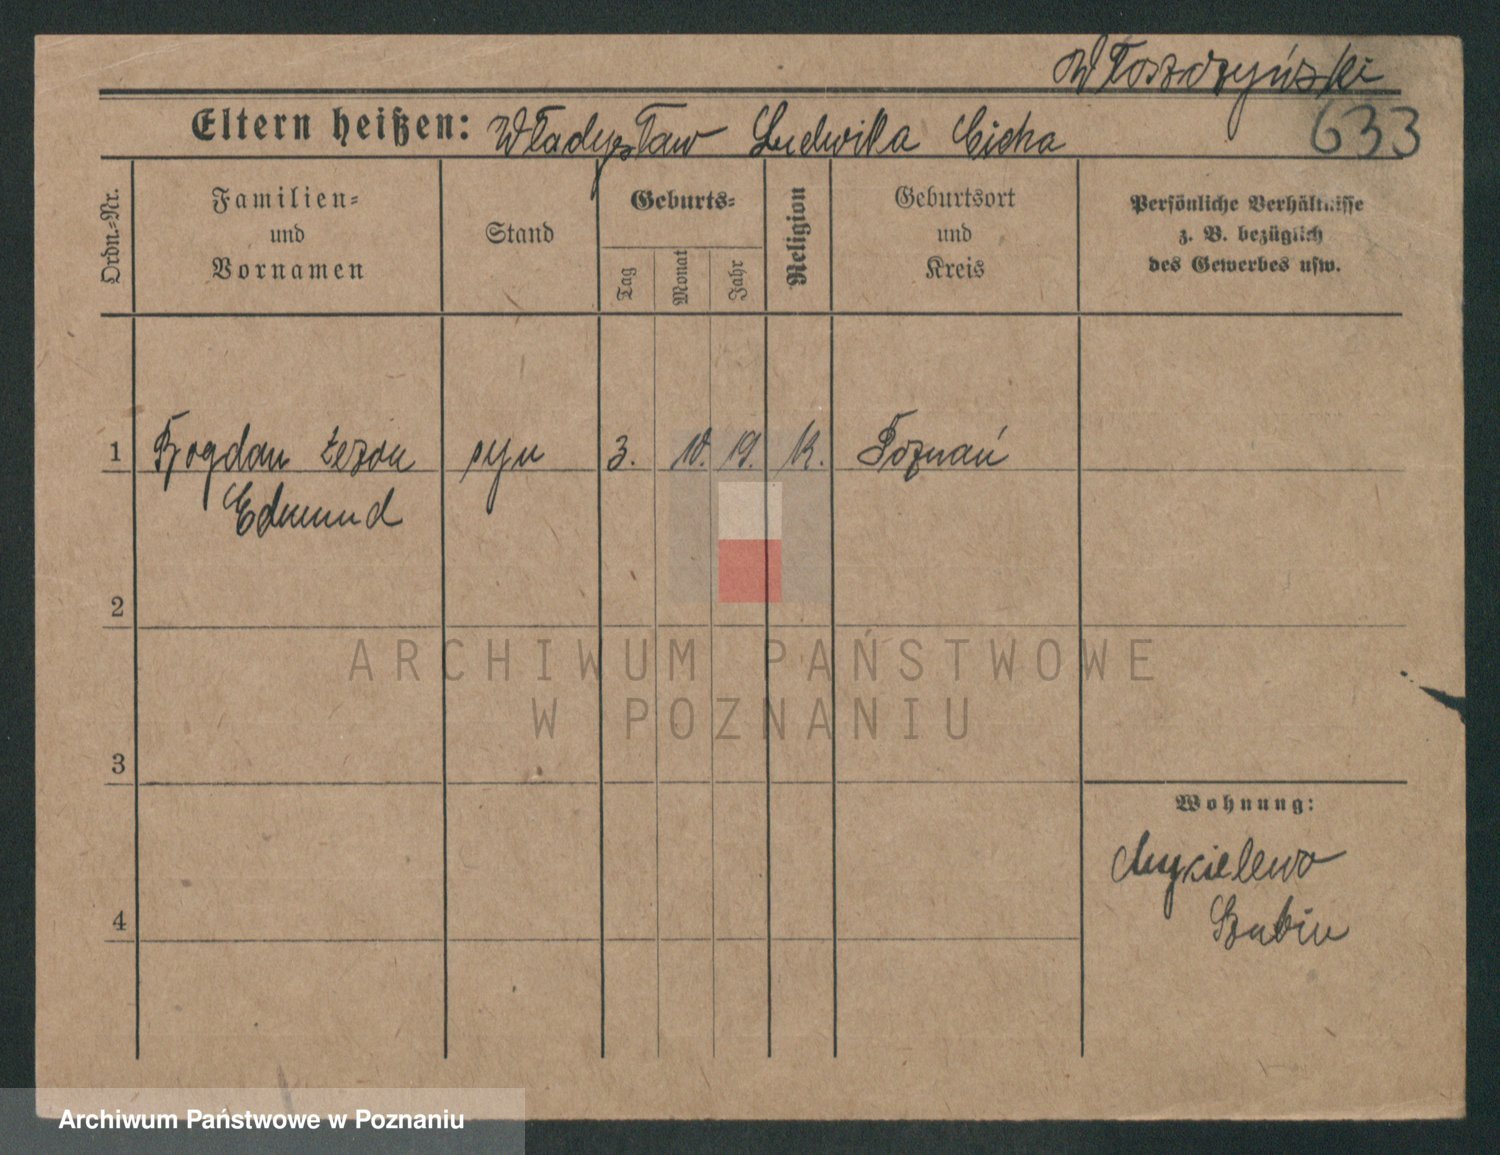 Włoszczyński
Eltern heißen: Władysław Ludwika Cicha
633
Ordn.-Nr.
Familien-
und
Vornamen
Stand
Geburts-
Tag
Monat
Jahr
Religion
Geburtsort
und
Kreis
Persönliche Verhältnisse
z. B. bezüglich
des Gewerbes usw.
1 Bogdan syn 3. 10. 19. k. Poznań
Edmund
2
ARCHIWUM PAŃSTWOWE
W POZNANIU
3
Wohnung:
4
Szubin
Archiwum Państwowe w Poznaniu